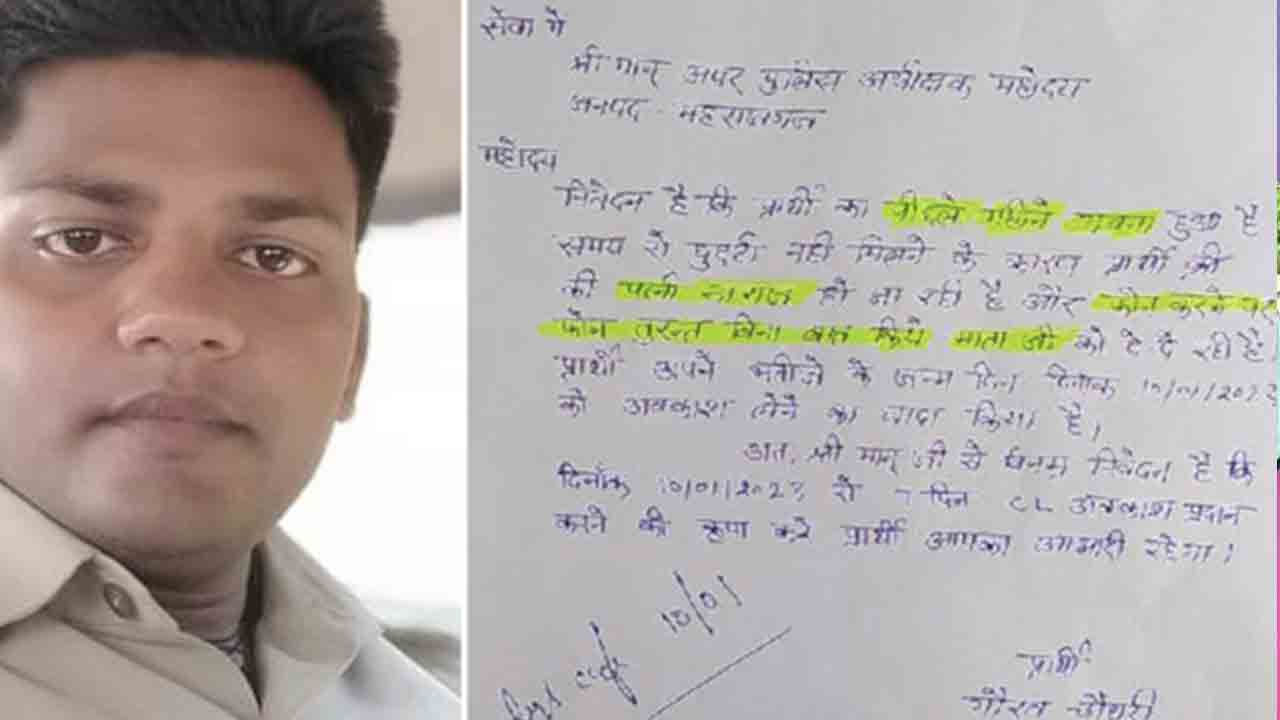 सेवा मे
श्री मान् अपर पुलिस अधीक्षक महोदय
जनपद - महराजगंज
महोदय
निवेदन है कि प्रार्थी का पीछले महिने गावना हुआ है
समय से छुट्टी नही मिलने के कारण प्रार्थी श्री
की पत्नी नाराज हो जा रही है और फोन करने पर
फोन तुरन्त बिना बात किये माता जी को दे दे रही है।
प्रार्थी अपने भतीजे के जन्म दिन दिनांक 10/01/2023
को अवकाश लेने का वादा किया है।
अत, श्री मान् जी से विनम्र निवेदन है कि
दिनाँक 10/01/2023 से 7 दिन CL अवकाश प्रदान
करने की कृपा करे प्रार्थी आपका आभारी रहेगा।
10/01
प्रार्थी
गौरव चौधरी